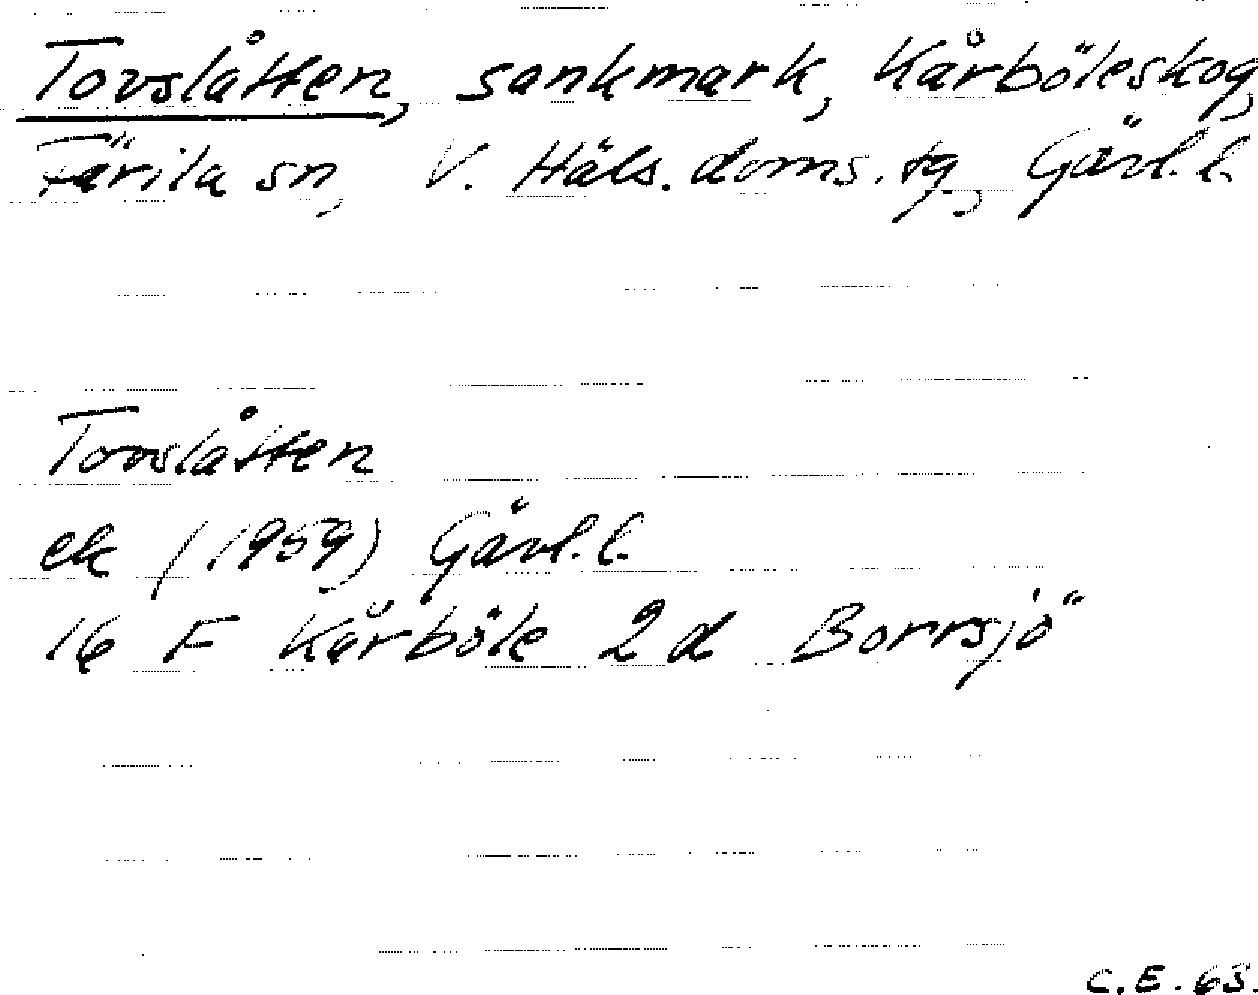 Tovslåtten, sankmark, Kårböleskog,
Färila sn, V. Häls. doms. tg, Gävl. l.
Tovslåtten
ek (1959) Gävl. l.
16 F Kårböle 2 d Borrsjö
C.E. 65.